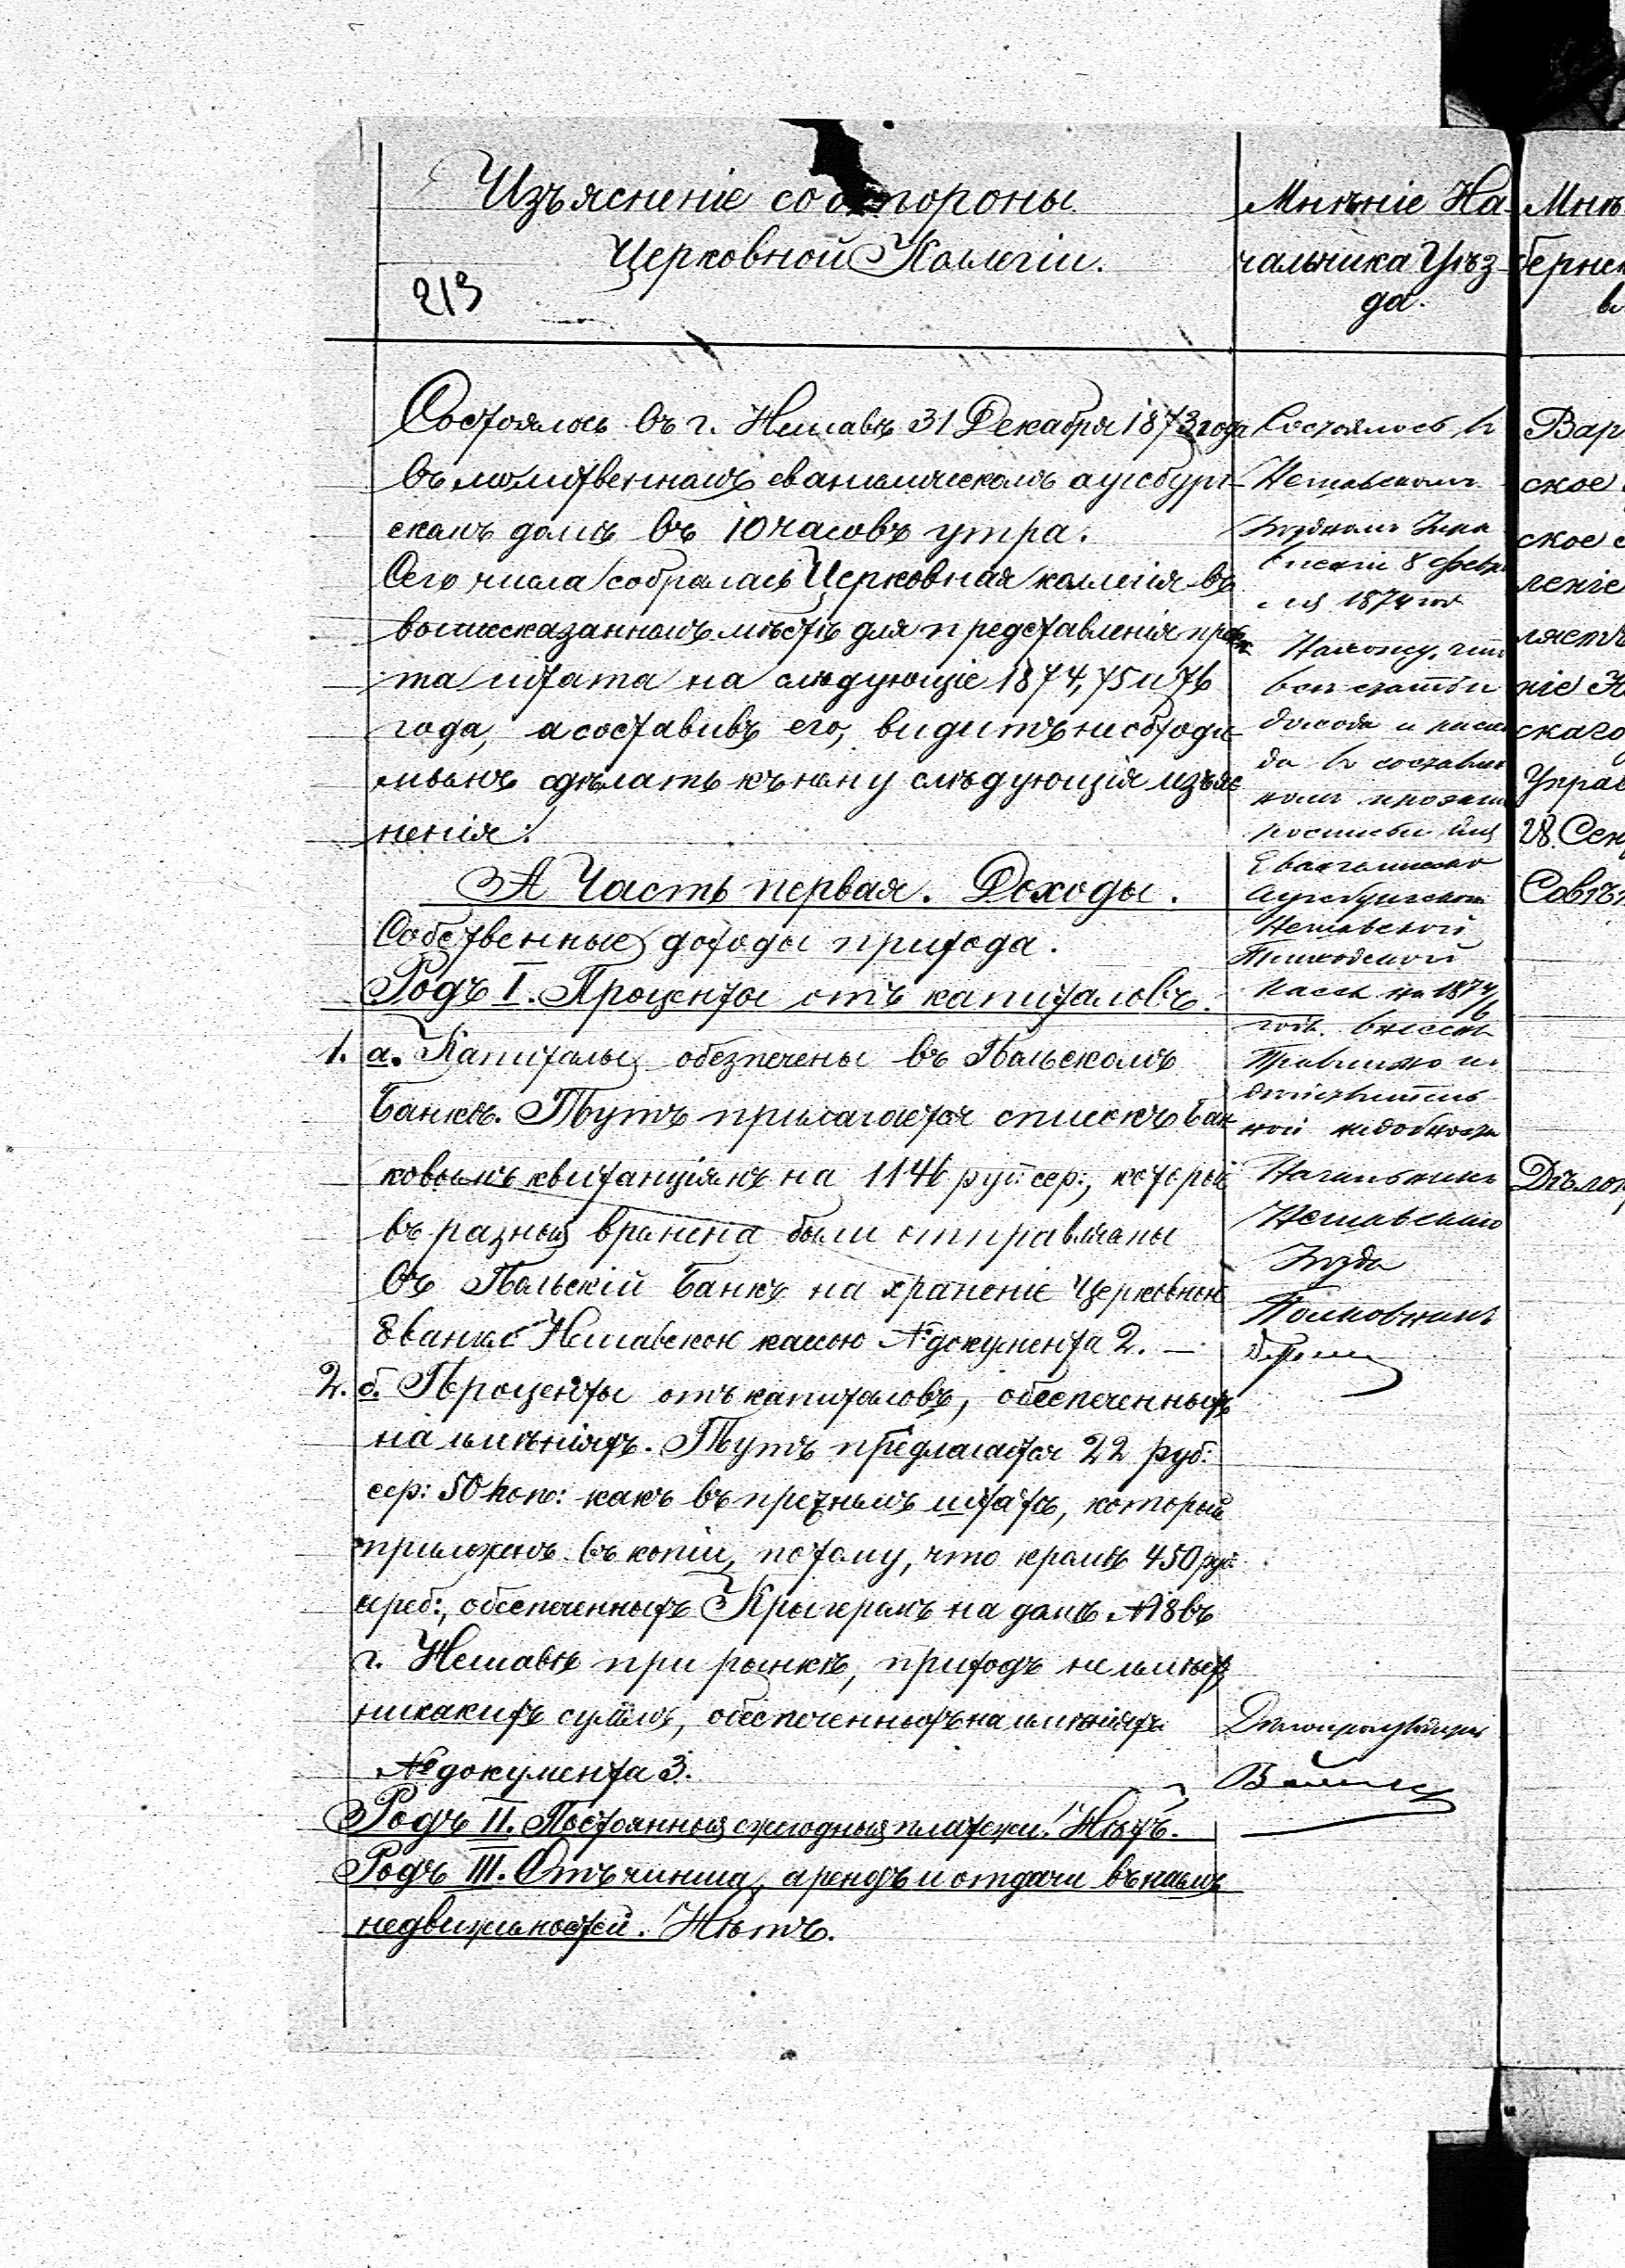 Изъясненіе со стороны
Церковной Коллегіи.
213
Состоялось въ г. Нешавѣ 31 Декабря 1873 года
въ молитвенномъ евангелическомъ аугсбург-
скомъ домѣ въ 10 часовъ утра.
Сего числа собралась Церковная коллегія въ
вышесказанномъ мѣстѣ для представленія проэк
та штата на слѣдующіе 1874, 75 и 76
года, а составивъ его, видитъ необходи-
мымъ сдѣлать къ нему слѣдующія изъяс
ненія:
А Часть первая. Доходы.
Собственные доходы прихода.
Родъ I. Проценты отъ капиталовъ.
1. а. Капиталы обезпечены въ Польскомъ
Банкѣ. Тутъ прилагается списокъ бан
ковымъ квитанціямъ на 1146 руб: сер:, которые
въ разныя времена были отправляемы
въ Польскій Банкъ на храненіе Церковной
Еванг: Нешавскою кассою № документа 2. —
2. б. Проценты отъ капиталовъ, обеспеченныхъ
на имѣніяхъ. Тутъ предлагается 22 руб:
сер: 50 коп: какъ въ прежнемъ штатѣ, который
приложенъ въ копіи, потому, что кромѣ 450 руб:
сереб:, обеспеченныхъ Крыгеромъ на домѣ № 18 въ
г. Нешавѣ при рынкѣ, приходъ не имѣетъ
никакихъ суммъ, обеспеченныхъ на имѣніяхъ
№ документа 3.
Родъ II. Постоянныя ежегодныя платежи. Нѣтъ.
Родъ III. Отъ чинша, арендъ и отдачи въ наемъ
недвижимостей. Нѣтъ.
Мнѣніе На-
чальника Уѣз-
да.
Состоялось въ
Нешавскомъ
Уѣздномъ Упра
вленіи 8 Февра
ля 1874 год
Нахожу, что
всѣ статьи
дохода и расхо
да въ составлен
номъ проэктѣ
росписи для
Евангелическо
Аугсбургской
Нешавской
Приходской
Кассы на 1874/6
годъ. внесены
Правильно и
дѣйствитель-
ной надобности
Начальникъ
Нешавскаго
Уѣзда
Полковникъ
Дѣлопроизводитель
Мнѣ
берне
Вар
ское
ское
леніе
ляетъ
ніе Н
скаго
Управ
28 Сен
Совѣт
Дѣлоп